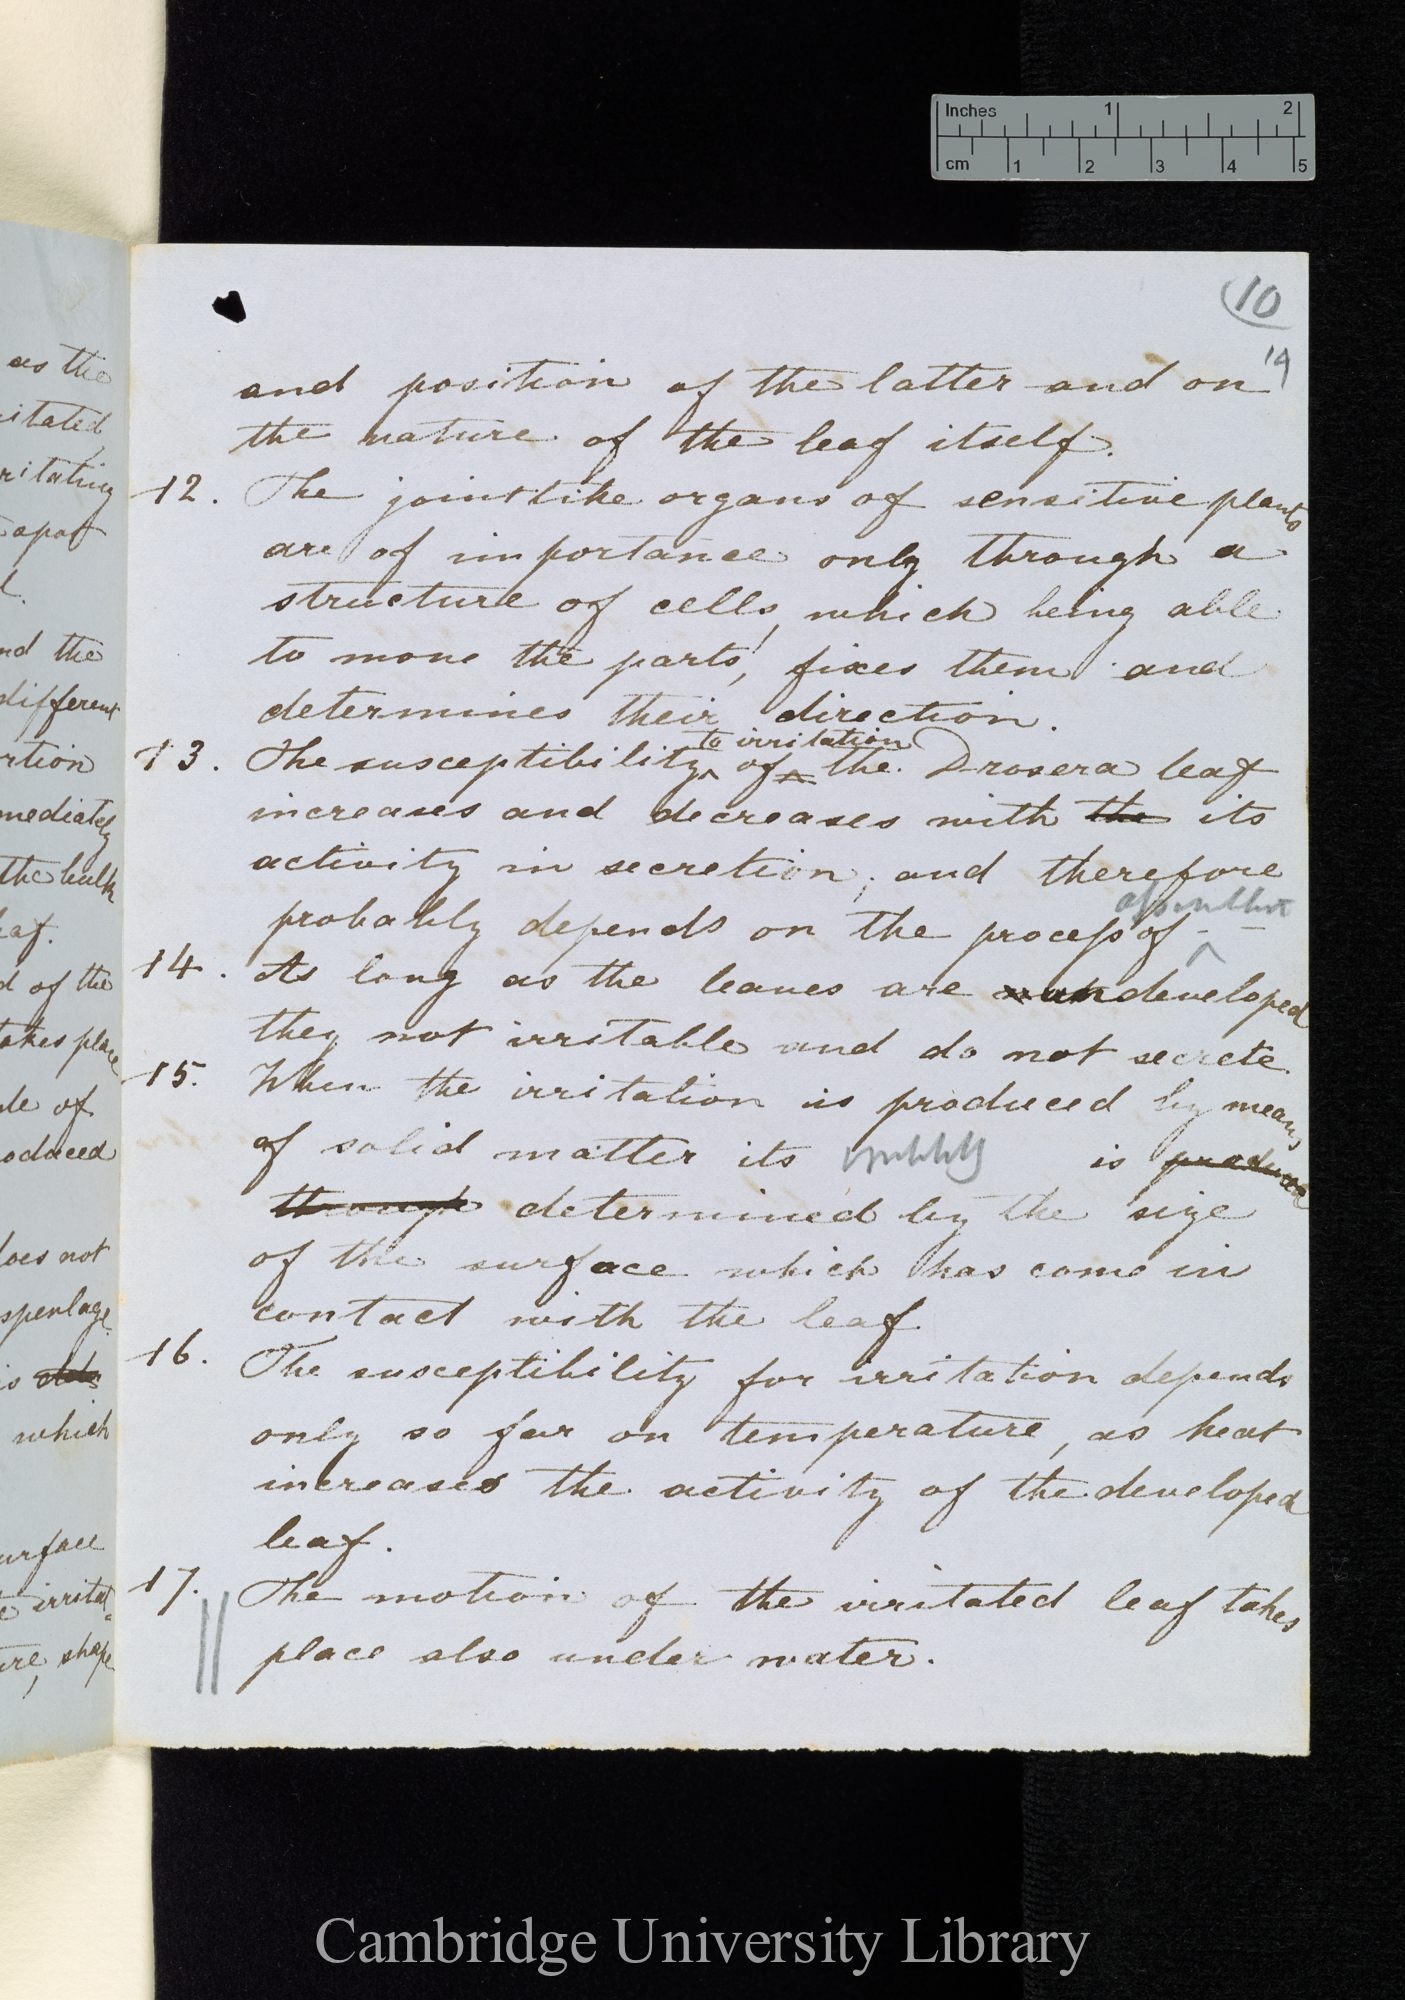 Inches 1 2
cm 1 2 3 4 5
10
19
and position of the latter and on
the nature of the leaf itself.
12. The jointlike organs of sensitive plants
are of importance only through a
structure of cells, which being able
to move the parts, fixes them and
determines their direction.
to irritation
13. The susceptibility of the Drosera leaf
increases and decreases with the its
activity in secretion, and therefore
probably depends on the process of
14. As long as the leaves are undeveloped
they not irritable and do not secrete
15. When the irritation is produced by means
of solid matter its is produced
through determined by the size
of the surface which has come in
contact with the leaf
16. The susceptibility for irritation depends
only so far on temperature, as heat
increases the activity of the developed
leaf.
17. The motion of the irritated leaf takes
place also under water.
as the
itated
ritating
spot
l.
nd the
different
rtion
mediately
the bulk
eaf.
d of the
takes place
de of
oduced
does not
sperlage.
is
which
urface
e irritat-
ure, shape
Cambridge University Library